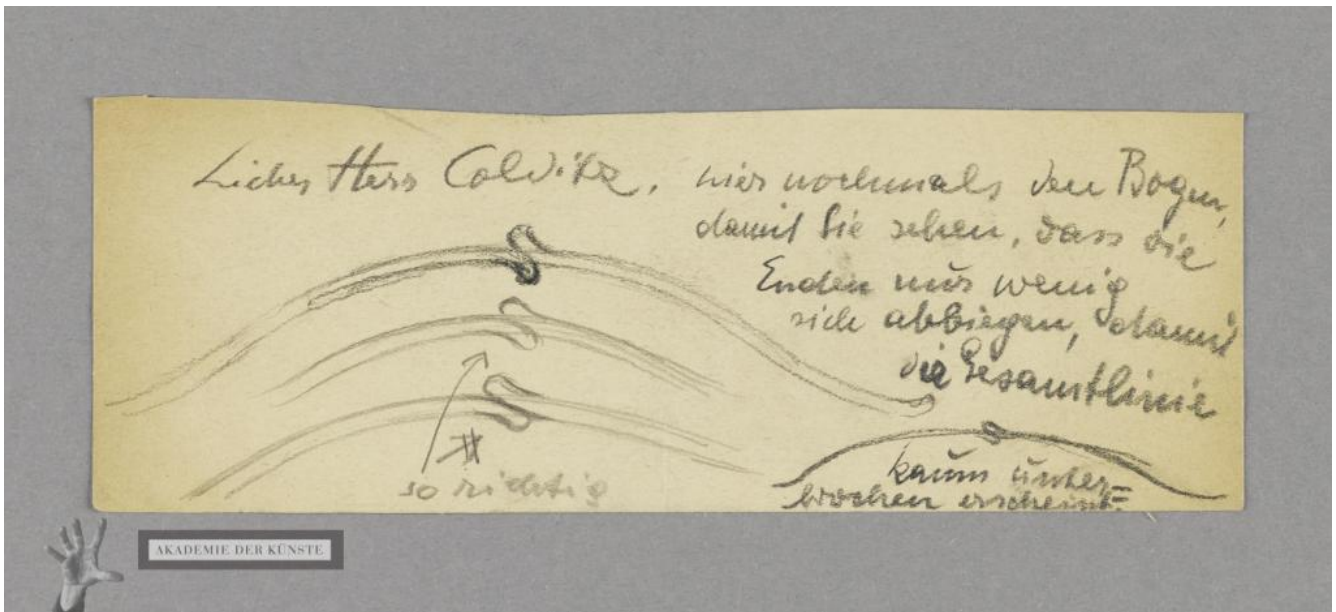 Lieber Herr Colditz, hier nochmals den Bogen,
damit Sie sehen, dass die
Enden nur wenig
sich abbiegen, damit
die Gesamtlinie
kaum unter=
brochen erscheint.
so richtig
AKADEMIE DER KÜNSTE